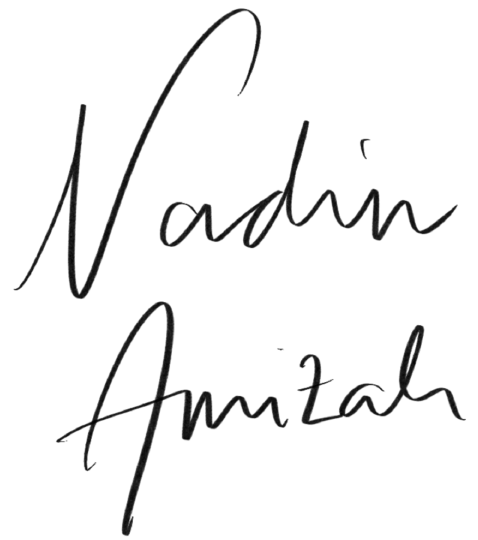 Nadin
Amizah